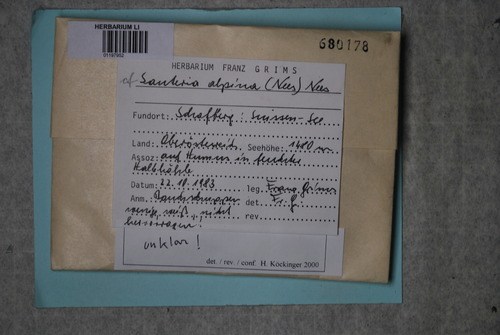 HERBARIUM LI
680178
HERBARIUM FRANZ GRIMS
cf Sauteria alpina (Nees) Nees
Fundort: Schafberg: Suissen-See
Land: Oberösterreich Seehöhe: 1480 m
Assoz: auf Humus in feuchter
Halbhöhle
Datum: 22.10.1983 leg. Franz Grims
Anm. Bauchschuppen det. Fr. G.
wenig weiß, nicht rev.
hervorragend
unklar!
det. / rev. / conf. H. Köckinger 2000